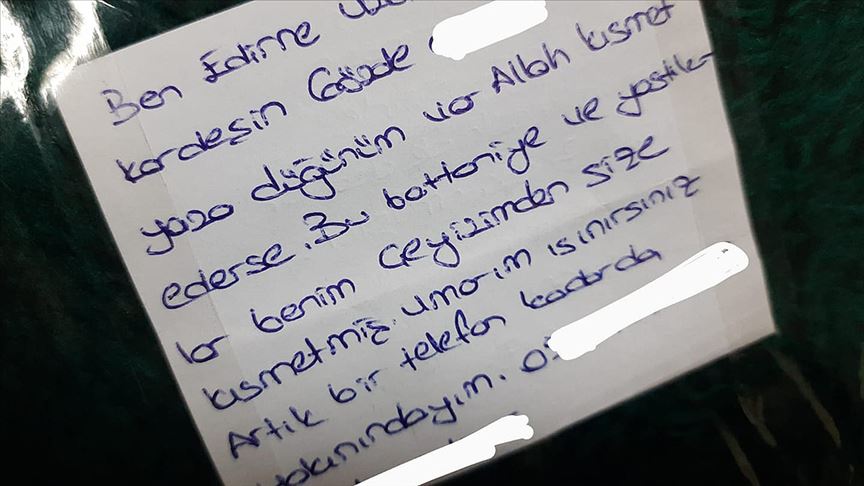 Ben Edirne
kardeşin Gözde
yaza düğünüm var Allah kısmet
ederse. Bu battaniye ve yastık-
lar benim çeyizimden size
kısmetmiş. umarım ısınırsınız
Artık bir telefon kadarda
yakınındayım. 05